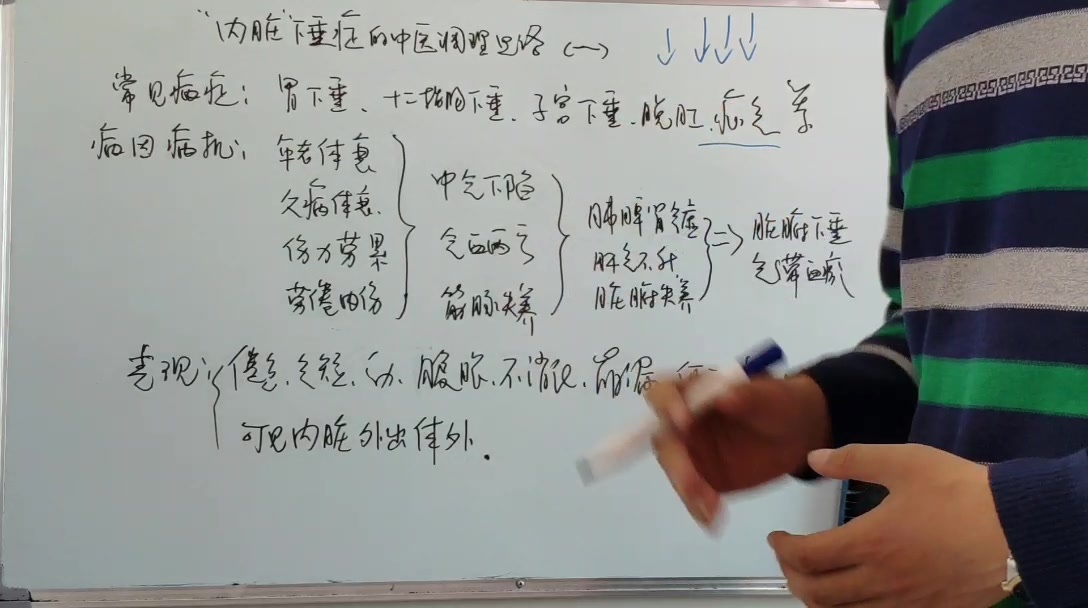 "内脏"下垂症的中医调理思路（一）
常见病症：胃下垂、十二指肠下垂、子宫下垂、脱肛、疝气等
病因病机：年老体衰
久病体衰
伤力劳累
劳倦内伤
中气下陷
气血两亏
筋脉失养
肺脾肾气虚
肝气不升
脏腑失养
=> 脏腑下垂
气滞血瘀
表现：倦怠、气短、乏力、腹胀、不消化、崩漏、
可见内脏外出体外.